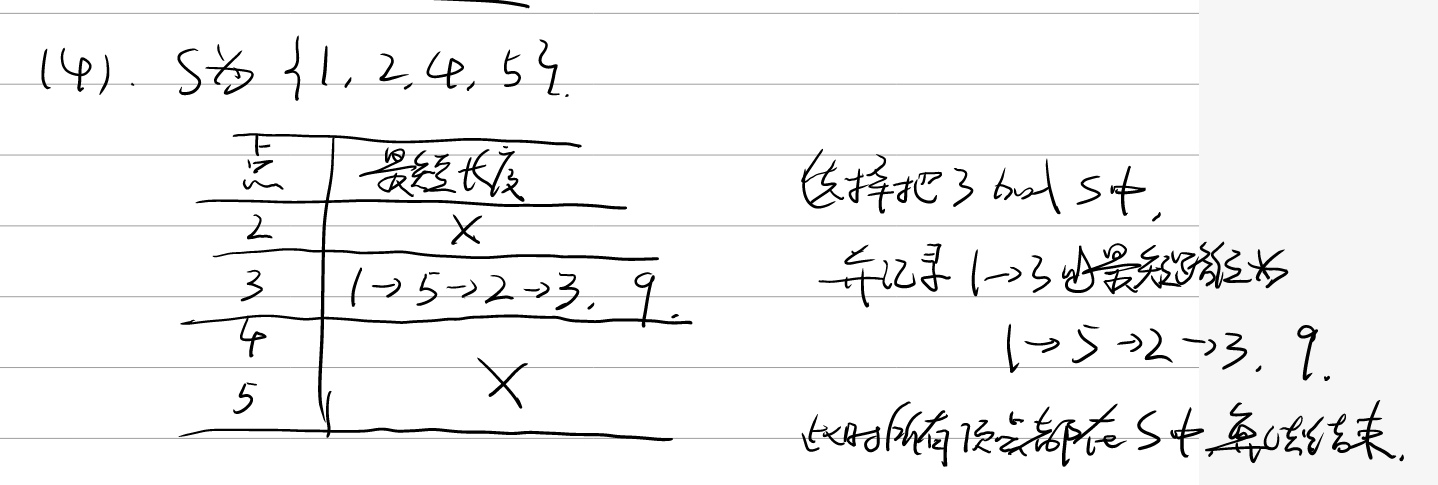 (4). S为 {1, 2, 4, 5}.
点 最短长度
2 X
3 1→5→2→3, 9.
4
5 X
选择把3 加入 S中,
并记录 1→3的最短路径为
1→5→2→3, 9.
此时所有顶点都在S中 算法结束.